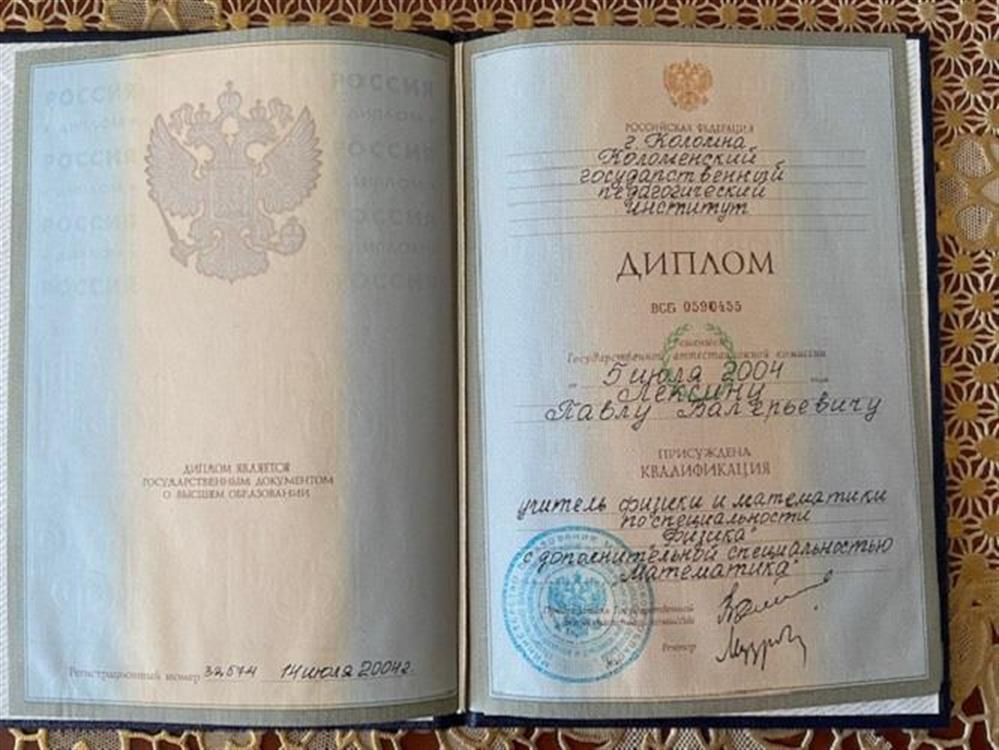 РОССИЯ
РОССИЯ
ДИПЛОМ
ДИПЛОМ
РОССИЯ
РОССИЯ
ДИПЛОМ
ДИПЛОМ
РОССИЯ
РОССИЯ
ДИПЛОМ
ДИПЛОМ
РОССИЯ
РОССИЯ
ДИПЛОМ ЯВЛЯЕТСЯ
ГОСУДАРСТВЕННЫМ ДОКУМЕНТОМ
О ВЫСШЕМ ОБРАЗОВАНИИ
Регистрационный номер 32574 14 июля 2004г.
РОССИЙСКАЯ ФЕДЕРАЦИЯ
г. Коломна
Коломенский
государственный
педагогический
институт
ДИПЛОМ
ВСБ 0590455
Решением
Государственной аттестационной комиссии
от 5 июля 2004 года
Лексину
Павлу Валерьевичу
ПРИСУЖДЕНА
КВАЛИФИКАЦИЯ
учитель физики и математики
по специальности
"Физика"
с дополнительной специальностью
"Математика"
Председатель Государственной
аттестационной комиссии
Ректор